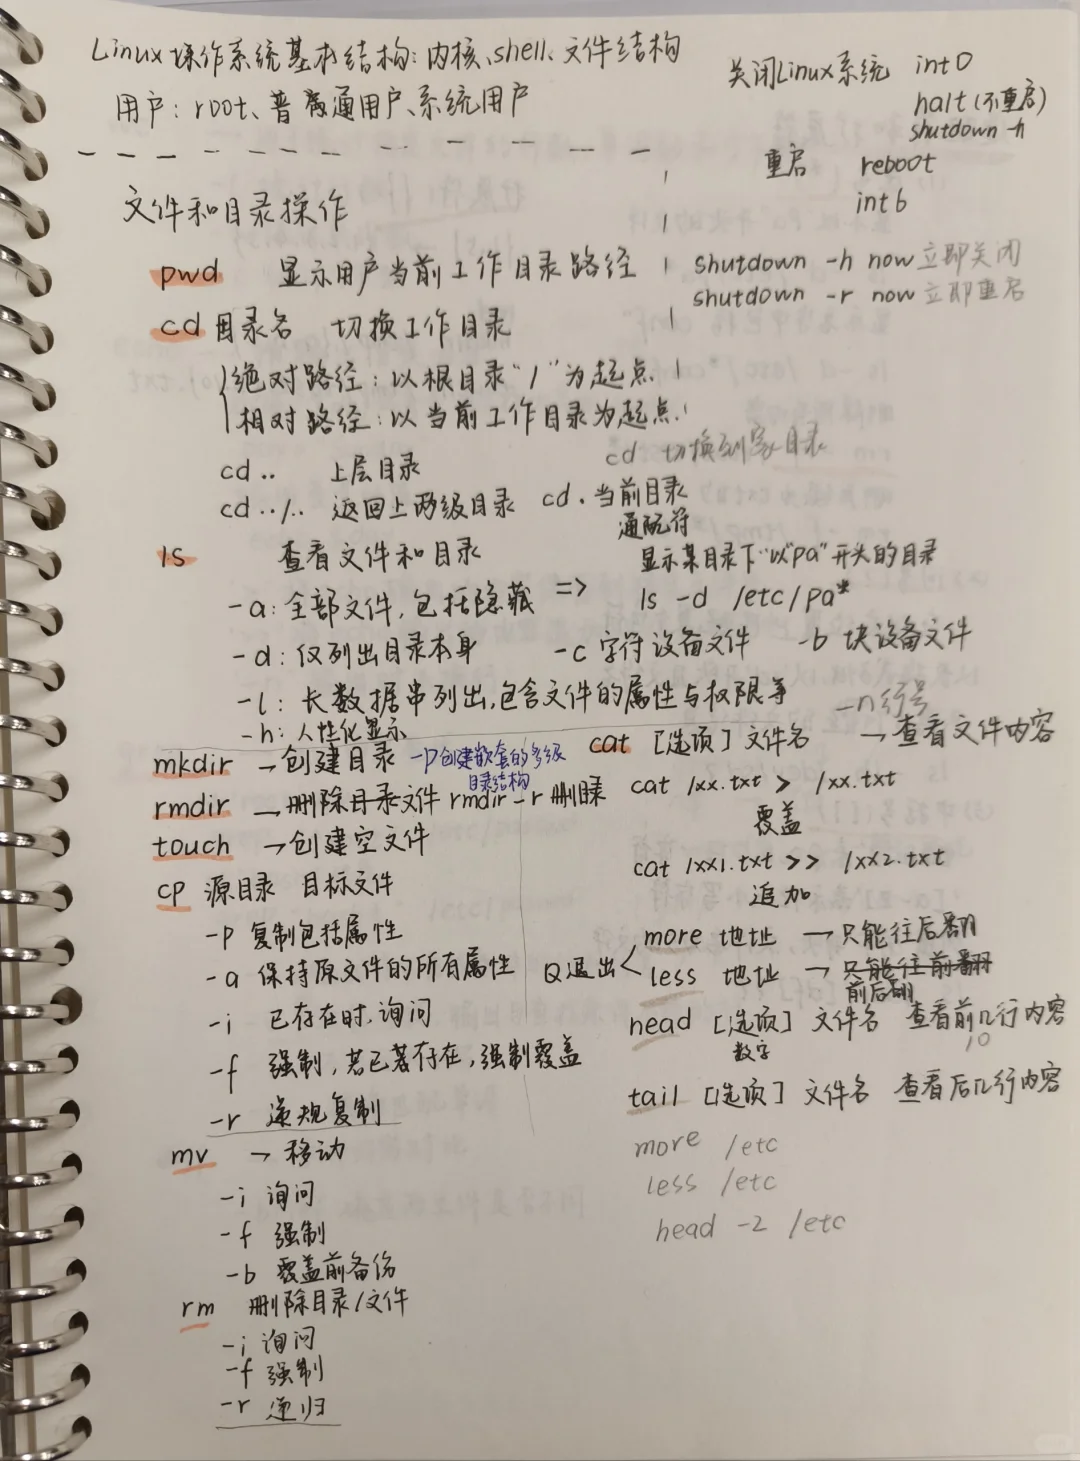 Linux操作系统基本结构:内核、shell、文件结构
用户:root、普通用户、系统用户
关闭Linux系统 int0
halt(不重启)
shutdown -h
重启 reboot
int6
shutdown -h now 立即关闭
shutdown -r now 立即重启
文件和目录操作
pwd 显示用户当前工作目录路径
cd 目录名 切换工作目录
绝对路径:以根目录“/”为起点
相对路径:以当前工作目录为起点
cd 切换到家目录
cd .. 上层目录
cd ../.. 返回上两级目录
cd . 当前目录
通配符
ls 查看文件和目录
-a:全部文件,包括隐藏 =>
显示某目录下“以”pa”开头的目录
ls -d /etc/pa*
-d:仅列出目录本身
-c 字符设备文件 -b 块设备文件
-l:长数据串列出,包含文件的属性与权限等
-h:人性化显示
mkdir →创建目录 -p创建嵌套的多级
目录结构
rmdir →删除目录文件 rmdir -r 删目录
touch →创建空文件
cp 源目录 目标文件
-p 复制包括属性
-a 保持原文件的所有属性
-i 已存在时,询问
-f 强制,若已若存在,强制覆盖
-r 递规复制
mv → 移动
-i 询问
-f 强制
-b 覆盖前备份
rm 删除目录/文件
-i 询问
-f 强制
-r 递归
-n行号
cat [选项] 文件名 →查看文件内容
cat /xx.txt > /xx.txt
覆盖
cat /xx1.txt >> /xx2.txt
追加
Q退出
more 地址 →只能往后翻
less 地址 →只能往前翻
前后翻
head [选项] 文件名 查看前几行内容
数字
10
tail [选项] 文件名 查看后几行内容
more /etc
less /etc
head -2 /etc